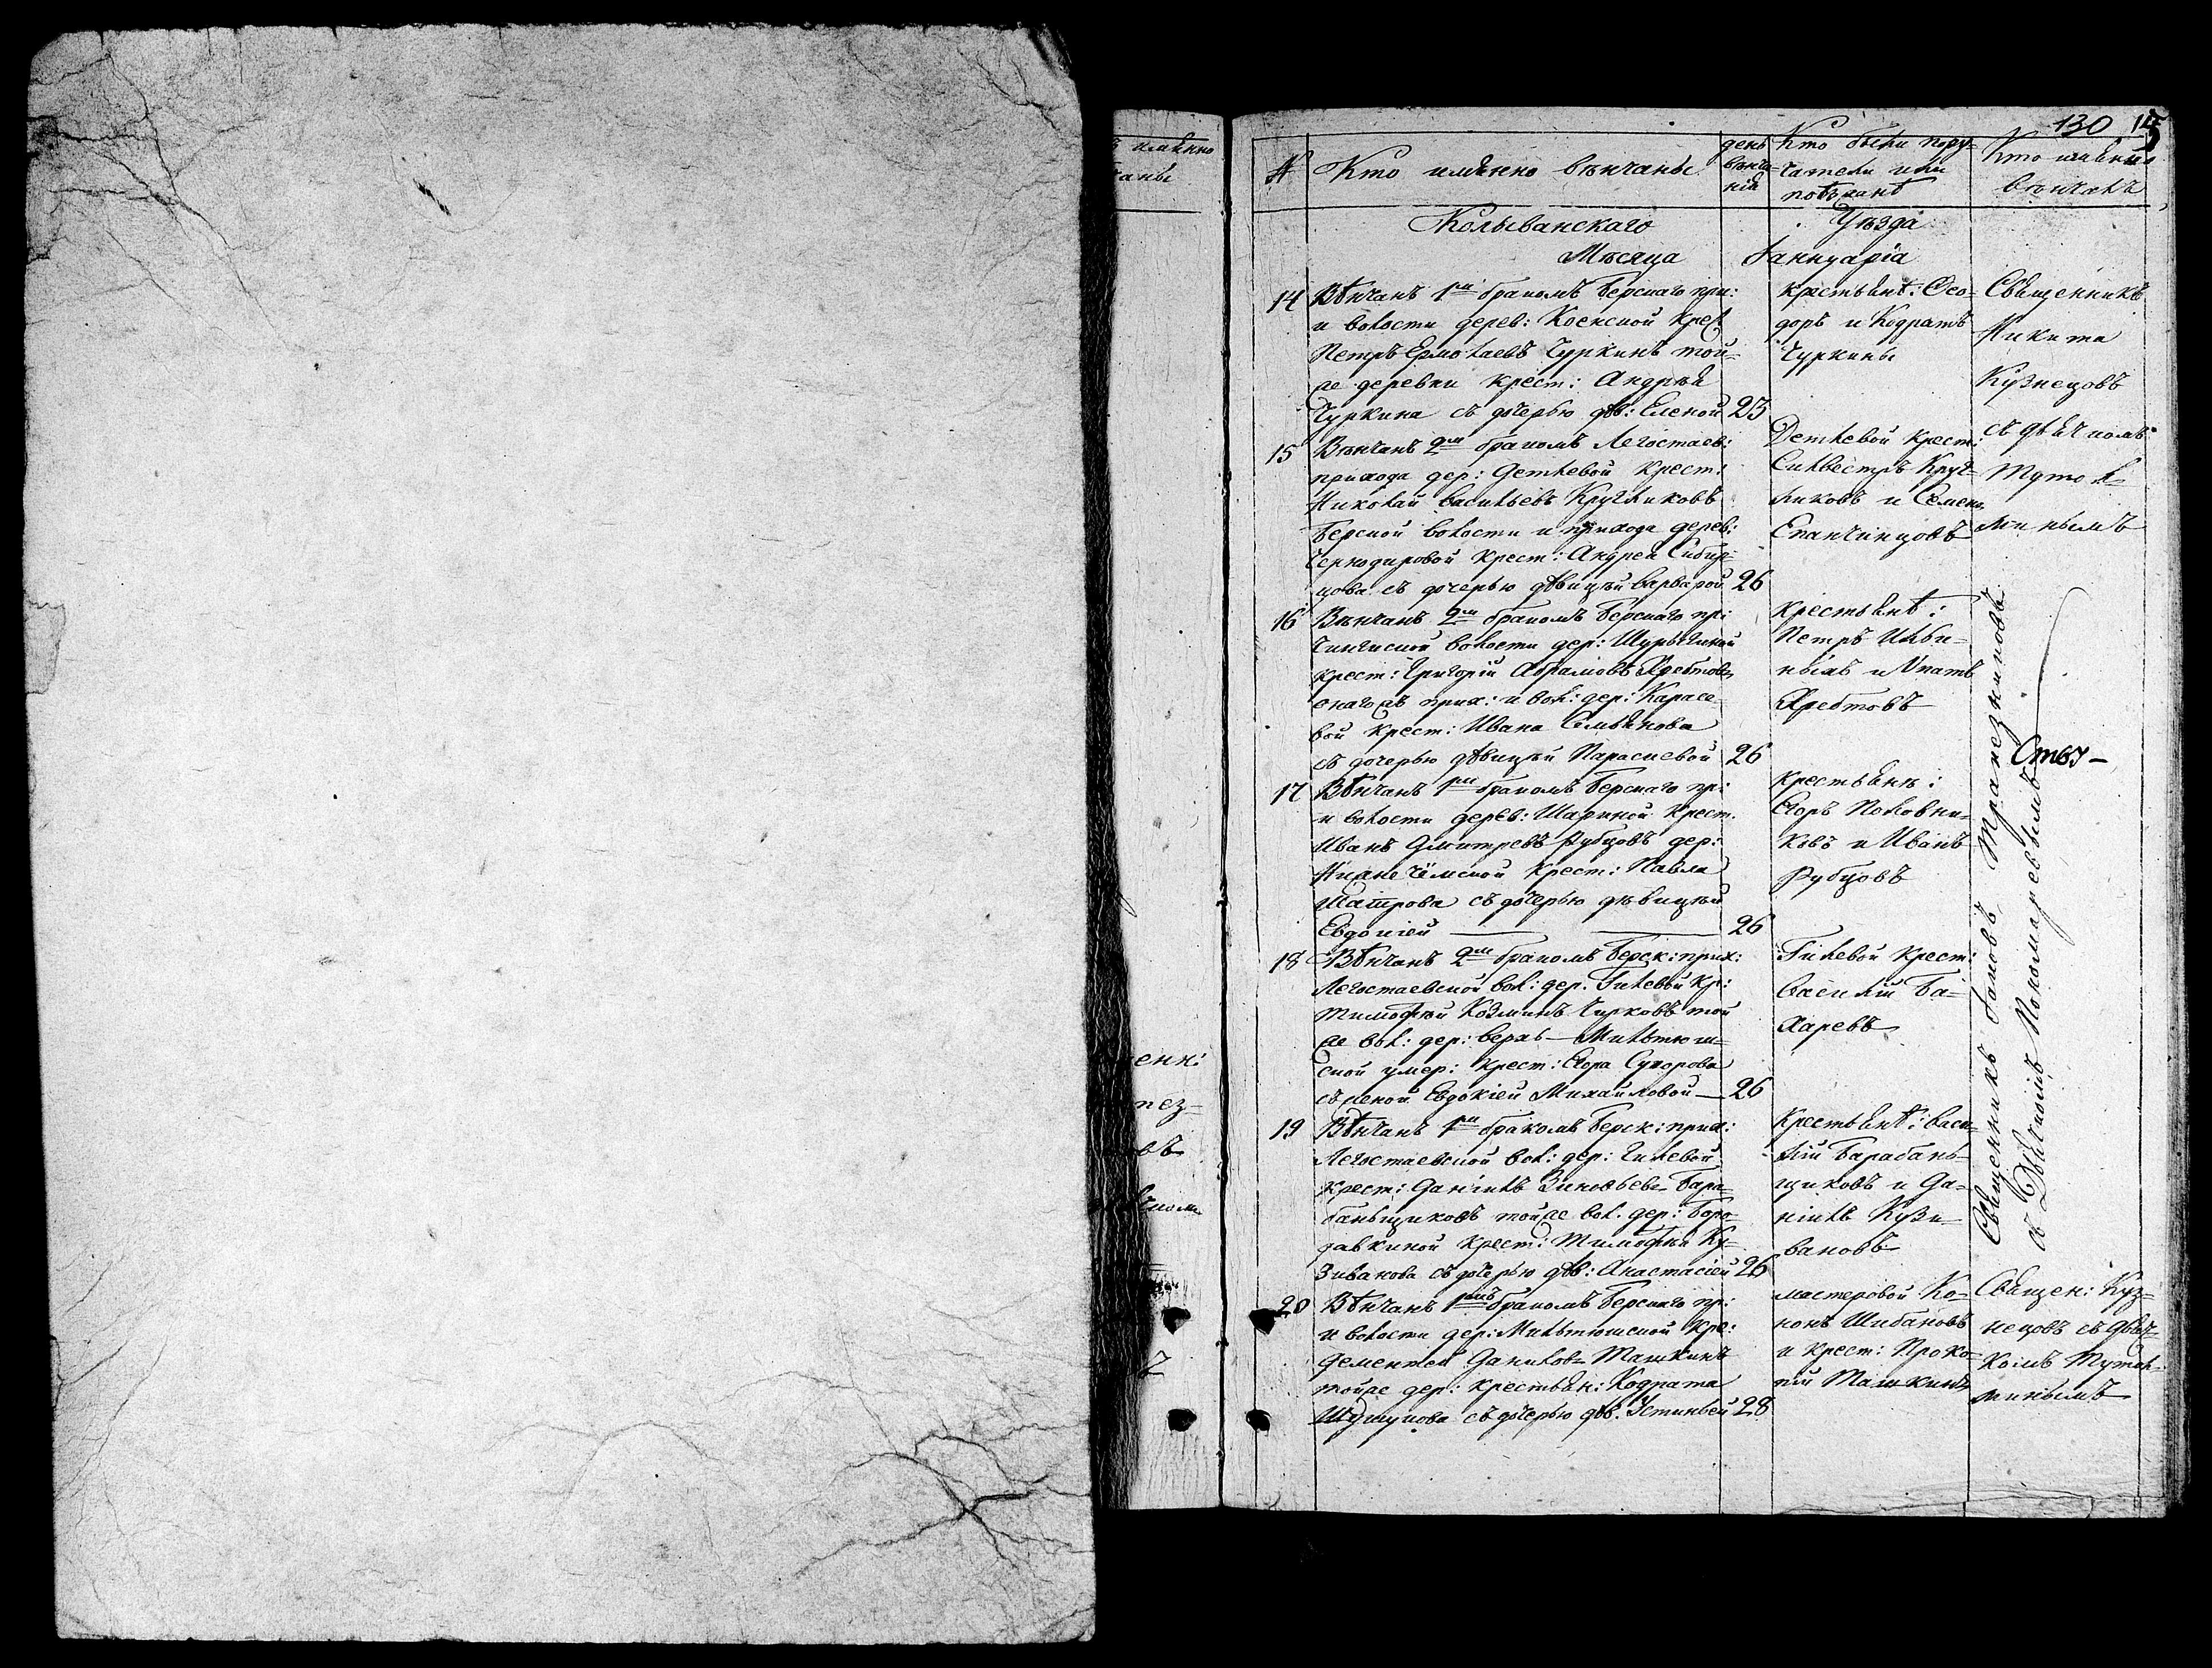 130
№ Кто именно вѣнчаны
день вѣнча=
нія
Кто были пору=
чатели или
поѣзжанѣ
Кто именно
вѣнчалъ
Колыванскаго Уѣзда
Мѣсяца Іаннуаріа
14 Вѣнчанъ 1мъ бракомъ Берскаго при:
и волости дерев: Коенской крест
Петръ Ермолаевъ Чуркинъ той=
же деревни крест: Андрѣя
Чуркина съ дочерью дѣв: Еленой 23
крестьянѣ: Ѳео=
доръ и Кодратъ
Чуркины
Священникъ
Никита
Кузнецовъ
съ дьячкомъ
Тутол=
минымъ
15 Вѣнчанъ 2мъ бракомъ Легостаев:
прихода дер: Детлевой крест:
Николай Васильевъ Кругликовъ
Берской волости и прихода дерев:
Чернодыровой крест: Андрея Сибир=
цова съ дочерью дѣвицѣй Варварой 26
Детлевой крест:
Силвестръ Круг=
ликовъ и Семенъ
Епанчинцовъ
16 Вѣнчанъ 2мъ бракомъ Берскаго пр:
Чингиской волости дер: Шурыгиной
крест: Григорій Абрамовъ Хребтовъ
онагожъ прих: и вол: дер: Карасе=
вой крест: Ивана Семьянова
съ дочерью дѣвицѣй Параскевой 26
крестьянѣ:
Петръ Ильи=
ныхъ и Ипатъ
Хребтовъ
17 Вѣнчанъ 1мъ бракомъ Берскаго пр:
и волости дерев: Шариной крест.
Иванъ Дмитревъ Рубцовъ дер:
Нижнечёмской крест: Павла
Шатрова съ дочерью дѣвицѣй
Евдокіей 26
крестьянѣ:
Егоръ Половни=
ковъ и Иванъ
Рубцовъ
18 Вѣнчанъ 2мъ бракомъ Берск: прих:
Легостаевской вол: дер. Гилевой кр:
Тимофѣй Козминъ Чирковъ той
же вол: дер: Верхъ-Мильтюш=
ской умер: крест: Егора Суворова
съ женой Евдокіей Михайловой 26
Гилевой крест:
Василій Ба=
харевъ
19 Вѣнчанъ 1мъ бракомъ Берск: прих:
Легостаевской вол: дер: Гилевой
крест: Даніилъ Зиновьевъ Бара=
баньщиковъ тойже вол. дер: Боро=
давкиной крест: Тимофѣя Ку=
зиванова съ дочерью дѣв: Анастасіей 26
крестьянѣ: Васи=
лій Барабань=
щиковъ и Да=
ніилъ Кузи=
вановъ
Священникъ Іаковъ Трапезниковъ
съ Дьячкомъ Пономаревымъ
20 Вѣнчанъ 1мъ бракомъ Берскаго пр:
и волости дер: Мильтюшской кре:
Дементей Даниловъ Ташкинъ
тойже дер: крестьян: Кодрата
Шушунова съ дочерью дѣв. Устиньей 28
мастеровой Ко=
нонъ Шибановъ
и крест: Проко=
пій Ташкинъ
Священ: Куз=
нецовъ съ дьяч=
комъ Тутол=
минымъ